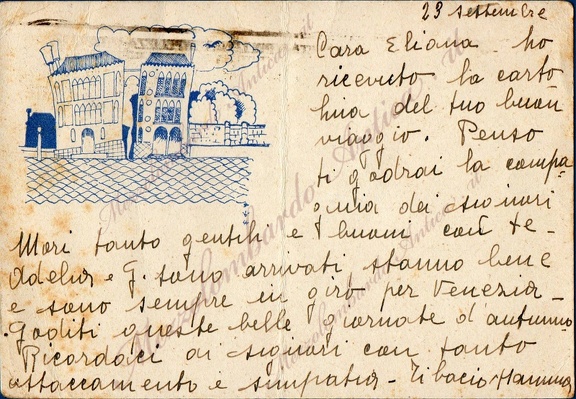 23 settembre
Cara Eliana - ho
ricevuto la carto
lina del tuo buon
viaggio. Penso
ti godrai la compa-
gnia dei signori
Mori tanto gentili e buoni con te -
Adelia e G. sono arrivati stanno bene
e sono sempre in giro per Venezia -
Goditi queste belle giornate d'autunno
Ricordaci ai signori con tanto
attaccamento e simpatia - Ti bacio Mamma